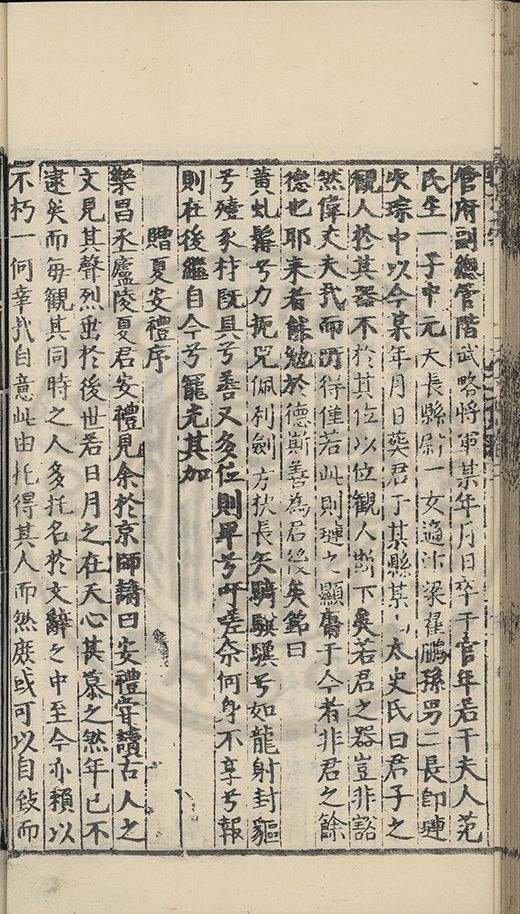 管府副總管階武略將軍某年月日卒于官年若干夫人范
氏生一子中元天長縣尉一女適汴梁翟鵬孫男二長即璉
次琮中以今某年月日葬君于某縣某、太史氏曰君子之
觀人於其器不於其位以位觀人斯下矣若君之器豈非豁
然偉丈夫哉而所得僅若此則璉之顯庸于今者非君之餘
德也耶来者能勉於德斯善為君後矣銘曰
黄虬髯兮力扼兕佩利劍方挾長矢騎騏驥兮如龍射封貙
兮殪豕材既具兮善又多位則卑兮吁嗟奈何身不享兮報
則在後繼自今兮寵光其加
贈夏安禮序
樂昌丞廬陵夏君安禮見余於京師請曰安禮甞讀古人之
文見其聲烈垂於後世若日月之在天心甚慕之然年已不
逮矣而每觀其同時之人多托名於文辭之中至今亦賴以
不朽一何幸哉自意此由托得其人而然庶或可以自致而